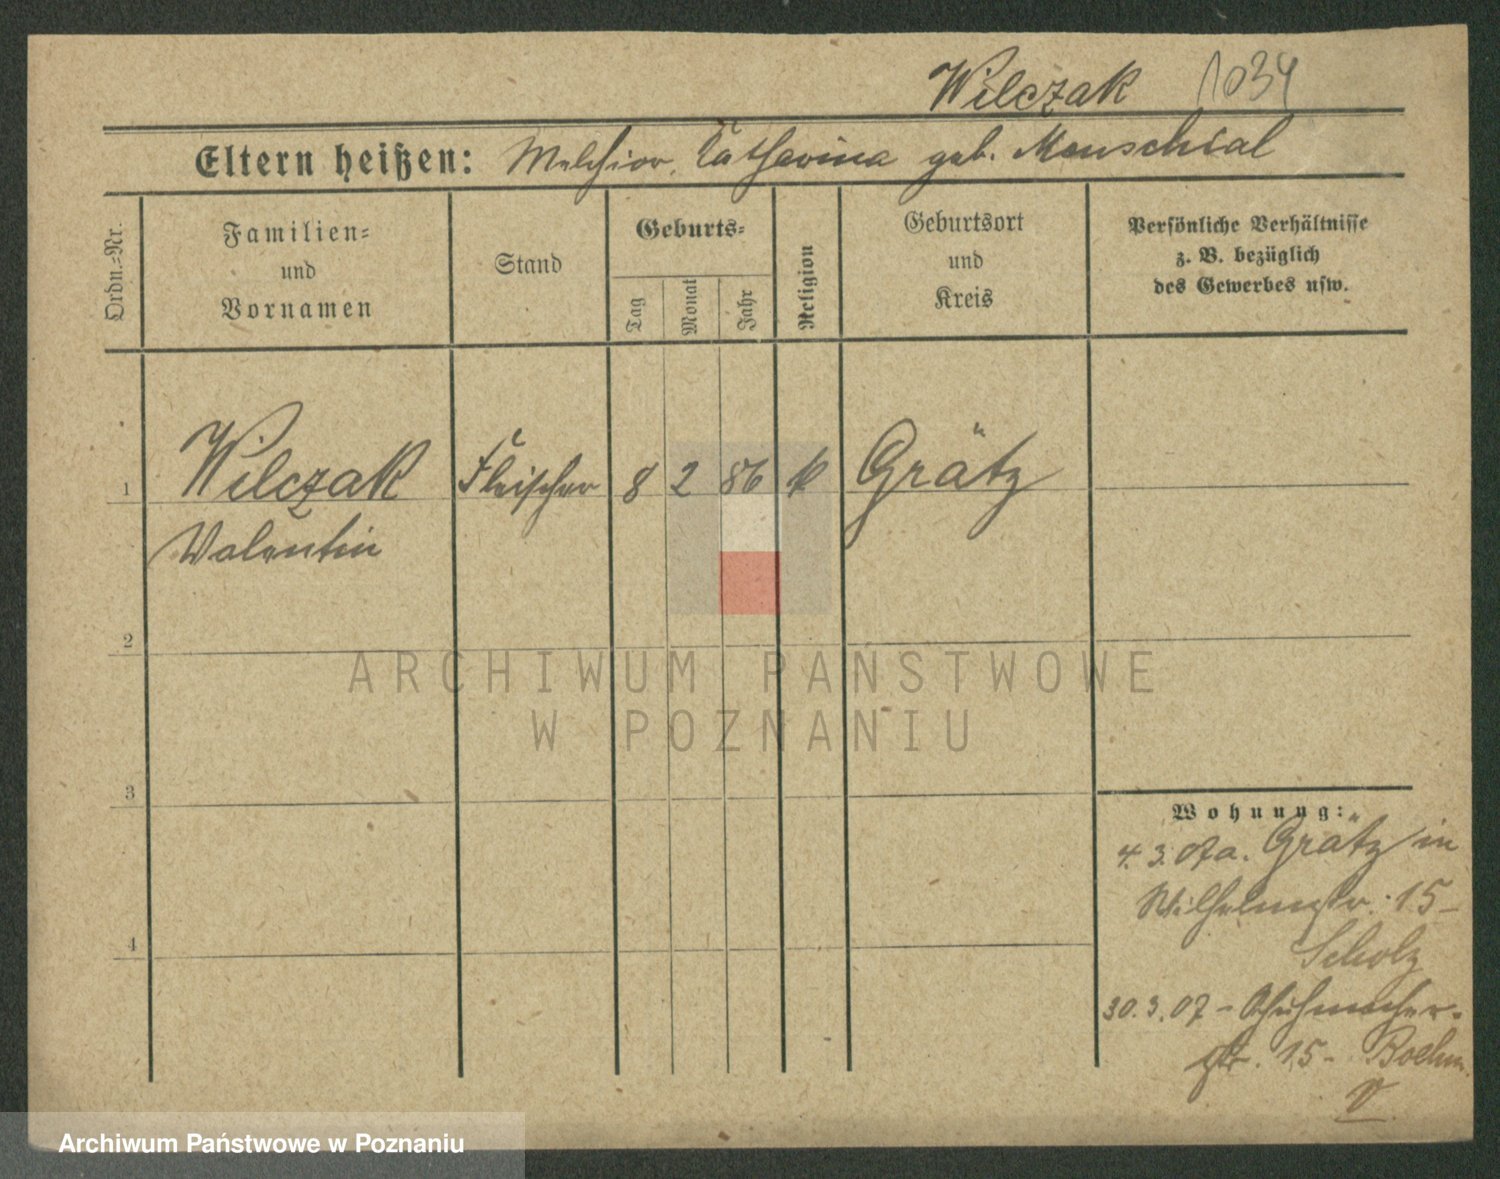 Wilczak 1034
Eltern heißen: Melchior, Catharina geb. Menschial
Ordn.-Nr.
Familien-
und
Vornamen
Stand
Geburts-
Tag
Monat
Jahr
Religion
Geburtsort
und
Kreis
Persönliche Verhältnisse
z. B. bezüglich
des Gewerbes usw.
1 Wilczak Fleischer 8 2 86 k Grätz
Valentin
2
3
4
Wohnung:
4.3.07 a. Grätz in
Wilhelmstr. 15-
Scholz
30.3.07 - Schuhmacher-
str. 15 - Boehm
V
ARCHIWUM PAŃSTWOWE
W POZNANIU
Archiwum Państwowe w Poznaniu